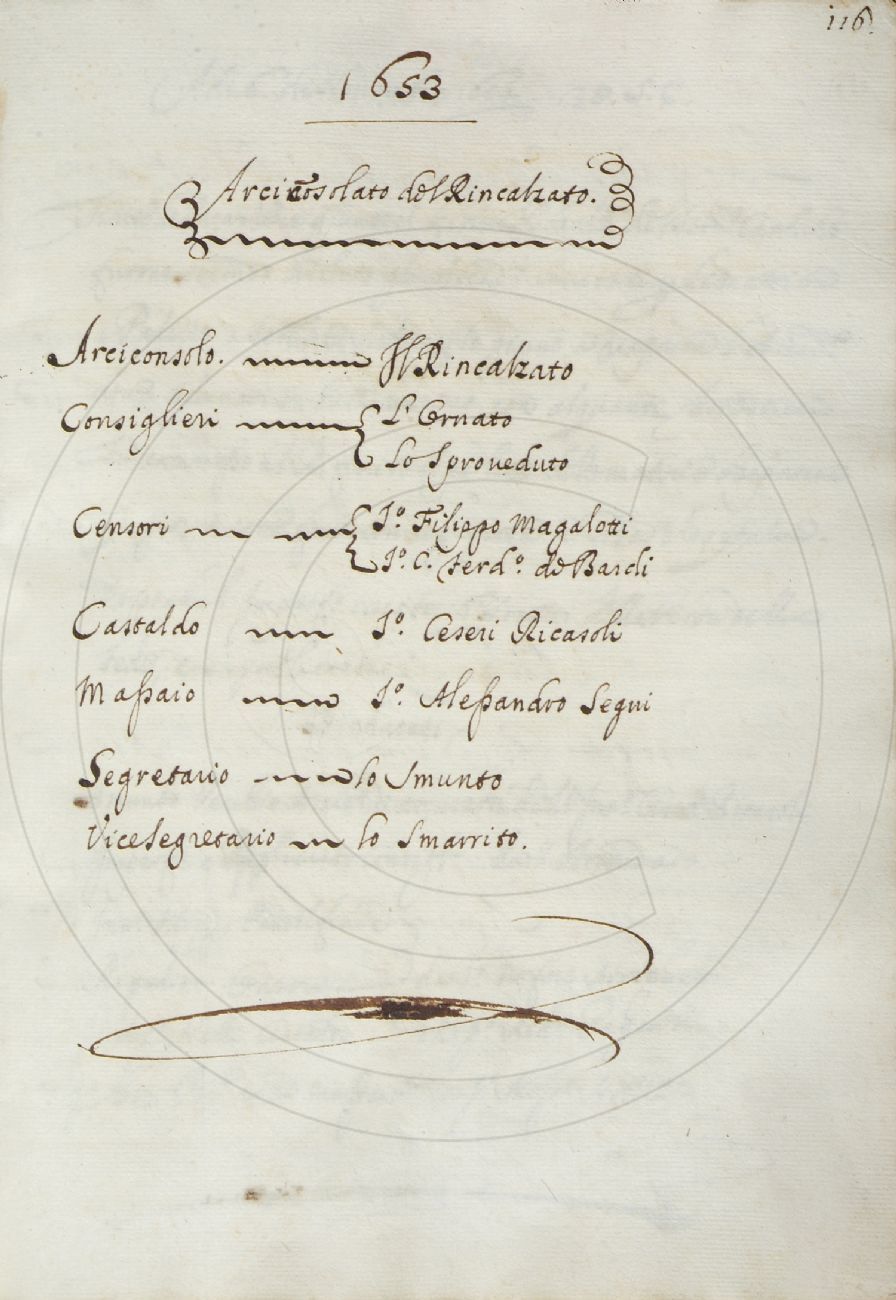 116.
1653
Arcicõsolato del Rincalzato.
Arciconsolo. Il Rincalzato
Consiglieri L'Ornato
Lo Sproveduto
Censori Sº. Filippo Magalotti
Sº. C. Ferdº. de Bardi
Castaldo Sº. Ceseri Ricasoli
Massaio Sº. Alessandro Segni
Segretario lo Smunto
ViceSegretario lo Smarrito.